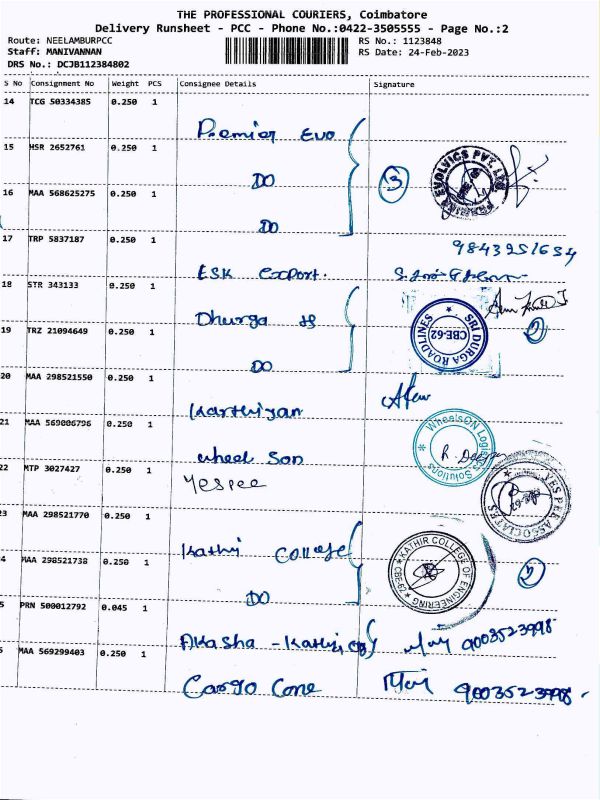 THE PROFESSIONAL COURIERS, Coimbatore
Delivery Runsheet - PCC - Phone No.:0422-3505555 - Page No.:2
Route: NEELAMBURPCC RS No.: 1123848
Staff: MANIVANNAN RS Date: 24-Feb-2023
DRS No.: DCJB112384802
S No Consignment No Weight PCS Consignee Details Signature
14 TCG 50334385 0.250 1
Premier Evo
15 HSR 2652761 0.250 1
DO
3
16 MAA 568625275 0.250 1
DO
17 TRP 5837187 0.250 1
ESK Export.
18 STR 343133 0.250 1
Dhurga
SRI DURGA ROADLINES
CBE-62
2
19 TRZ 21094649 0.250 1
DO
20 MAA 298521550 0.250 1
Karthiyan
21 MAA 569006796 0.250 1
Wheel Son
WheelsON Logistics Solutions
22 MTP 3027427 0.250 1
Yespee
YES PEE ASSOCIATES
23 MAA 298521770 0.250 1
Kathir College
KATHIR COLLEGE OF ENGINEERING
2
4 MAA 298521738 0.250 1
DO
5 PRN 500012792 0.045 1
Akasha - Kathir 9003523998
MAA 569299403 0.250 1
Cargo Cone 9003523998